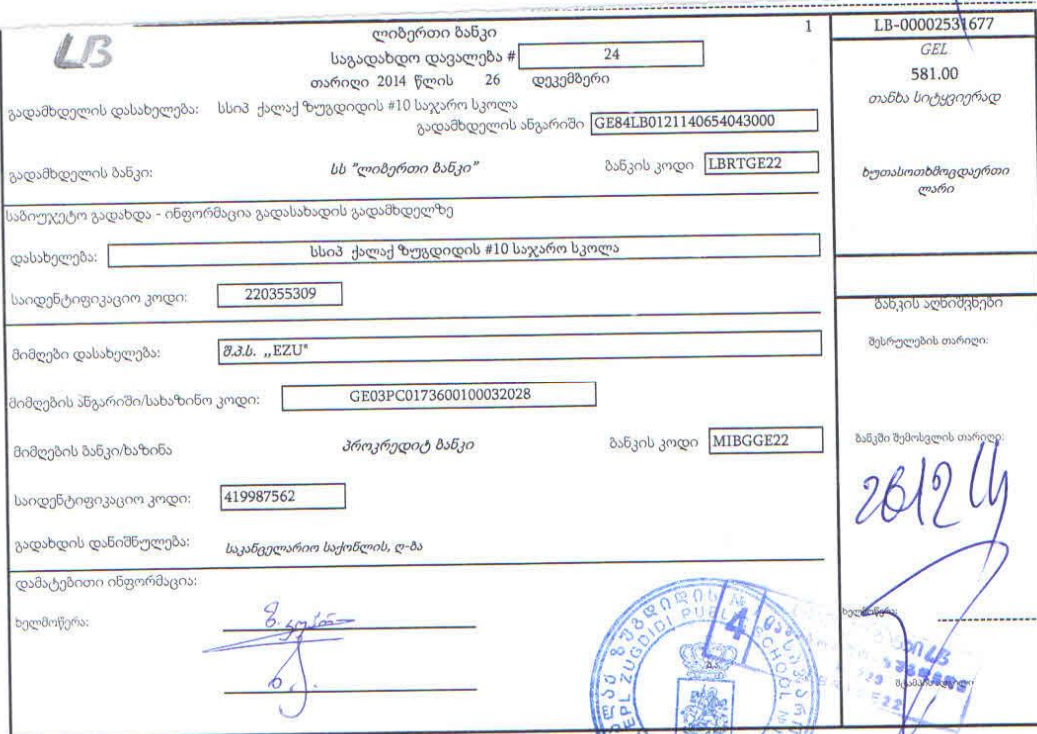 LB
ლიბერთი ბანკი 1
საგადახდო დავალება # 24
თარიღი 2014 წლის 26 დეკემბერი
გადამხდელის დასახელება: სსიპ ქალაქ ზუგდიდის #10 საჯარო სკოლა
გადამხდელის ანგარიში GE84LB0121140654043000
გადამხდელის ბანკი: სს "ლიბერთი ბანკი" ბანკის კოდი LBRTGE22
საბიუჯეტო გადახდა - ინფორმაცია გადასახადის გადამხდელზე
დასახელება: სსიპ ქალაქ ზუგდიდის #10 საჯარო სკოლა
საიდენტიფიკაციო კოდი: 220355309
მიმღები დასახელება: შ.პ.ს. ,,EZU"
მიმღების ანგარიში/სახაზინო კოდი: GE03PC0173600100032028
მიმღების ბანკი/ხაზინა პროკრედიტ ბანკი ბანკის კოდი MIBGGE22
საიდენტიფიკაციო კოდი: 419987562
გადახდის დანიშნულება: საკანცელარიო საქონლის, ღ-ბა
დამატებითი ინფორმაცია:
ხელმოწერა:
LB-00002531677
GEL
581.00
თანხა სიტყვიერად
ხუთასოთხმოცდაერთი
ლარი
ბანკის აღნიშვნები
შესრულების თარიღი:
ბანკში შემოსვლის თარიღი:
2612 14
ხელმოწერა:
ZUGDIDI PUBLIC SCHOOL №
4
ბ.ა.